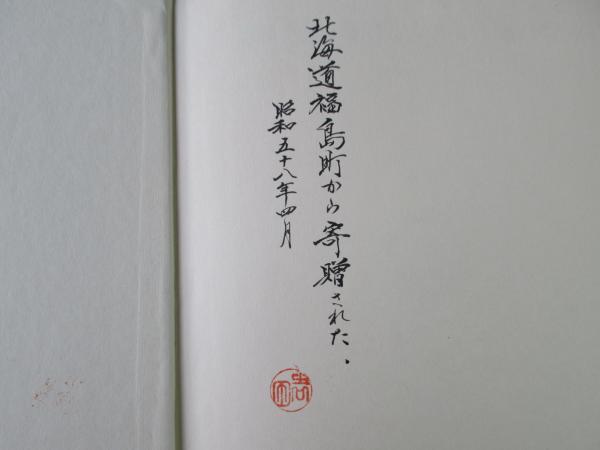 北海道福島町から寄贈された、
昭和五十八年四月